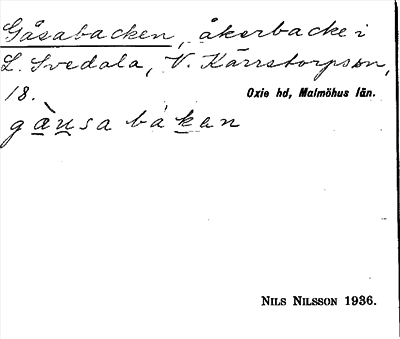 Gåsabacken, åkerbacke i
L. Svedala, V. Kärrstorpssn,
18.
Oxie hd, Malmöhus län.
gàu̲sa bákan
NILS NILSSON 1936.